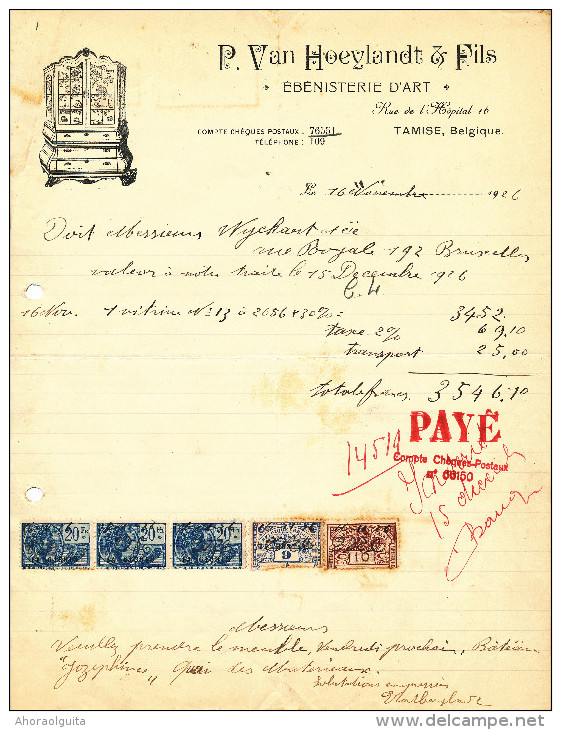 P. Van Hoeylandt & Fils
ÉBÉNISTERIE D'ART
Rue de l'Hôpital 16
COMPTE CHÈQUES POSTAUX : 76551
TÉLÉPHONE : 109
TAMISE, Belgique.
16 Novembre 1926
Doit Messieurs Wychaert & Cie
rue Royale 192 Bruxelles
valeur à notre traite le 15 Decembre 1926
16 Nov. 1 vitrine No 13 à 2656 + 30% = 3452.
taxe 2% 69.10
transport 25,00
totale francs 3546.10
PAYÉ
Compte Chèques-Postaux
n° 66150
14514
15
20
20
20
9
10
Messieurs
Veuillez prendre le meuble, Vendredi prochain, Bateau
"Jozephine" Quai des Materiaux.
Salutations empressées
Ahoraolguita
www.delcampe.net